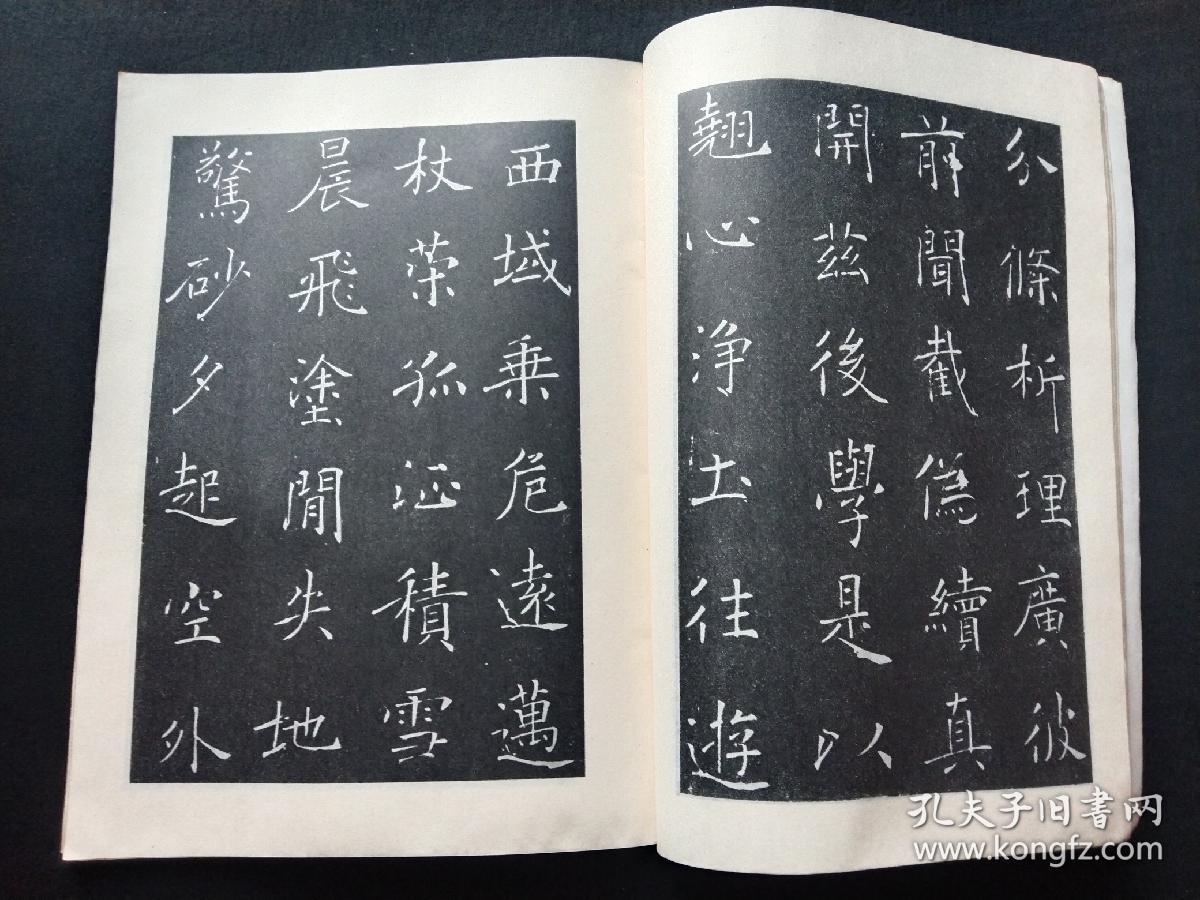 分條析理廣彼
前聞截偽續真
開茲後學是以
翹心淨土往遊
西域乘危遠邁
杖策孤征積雪
晨飛塗閒失地
驚砂夕起空外
孔夫子旧书网
www.kongfz.com